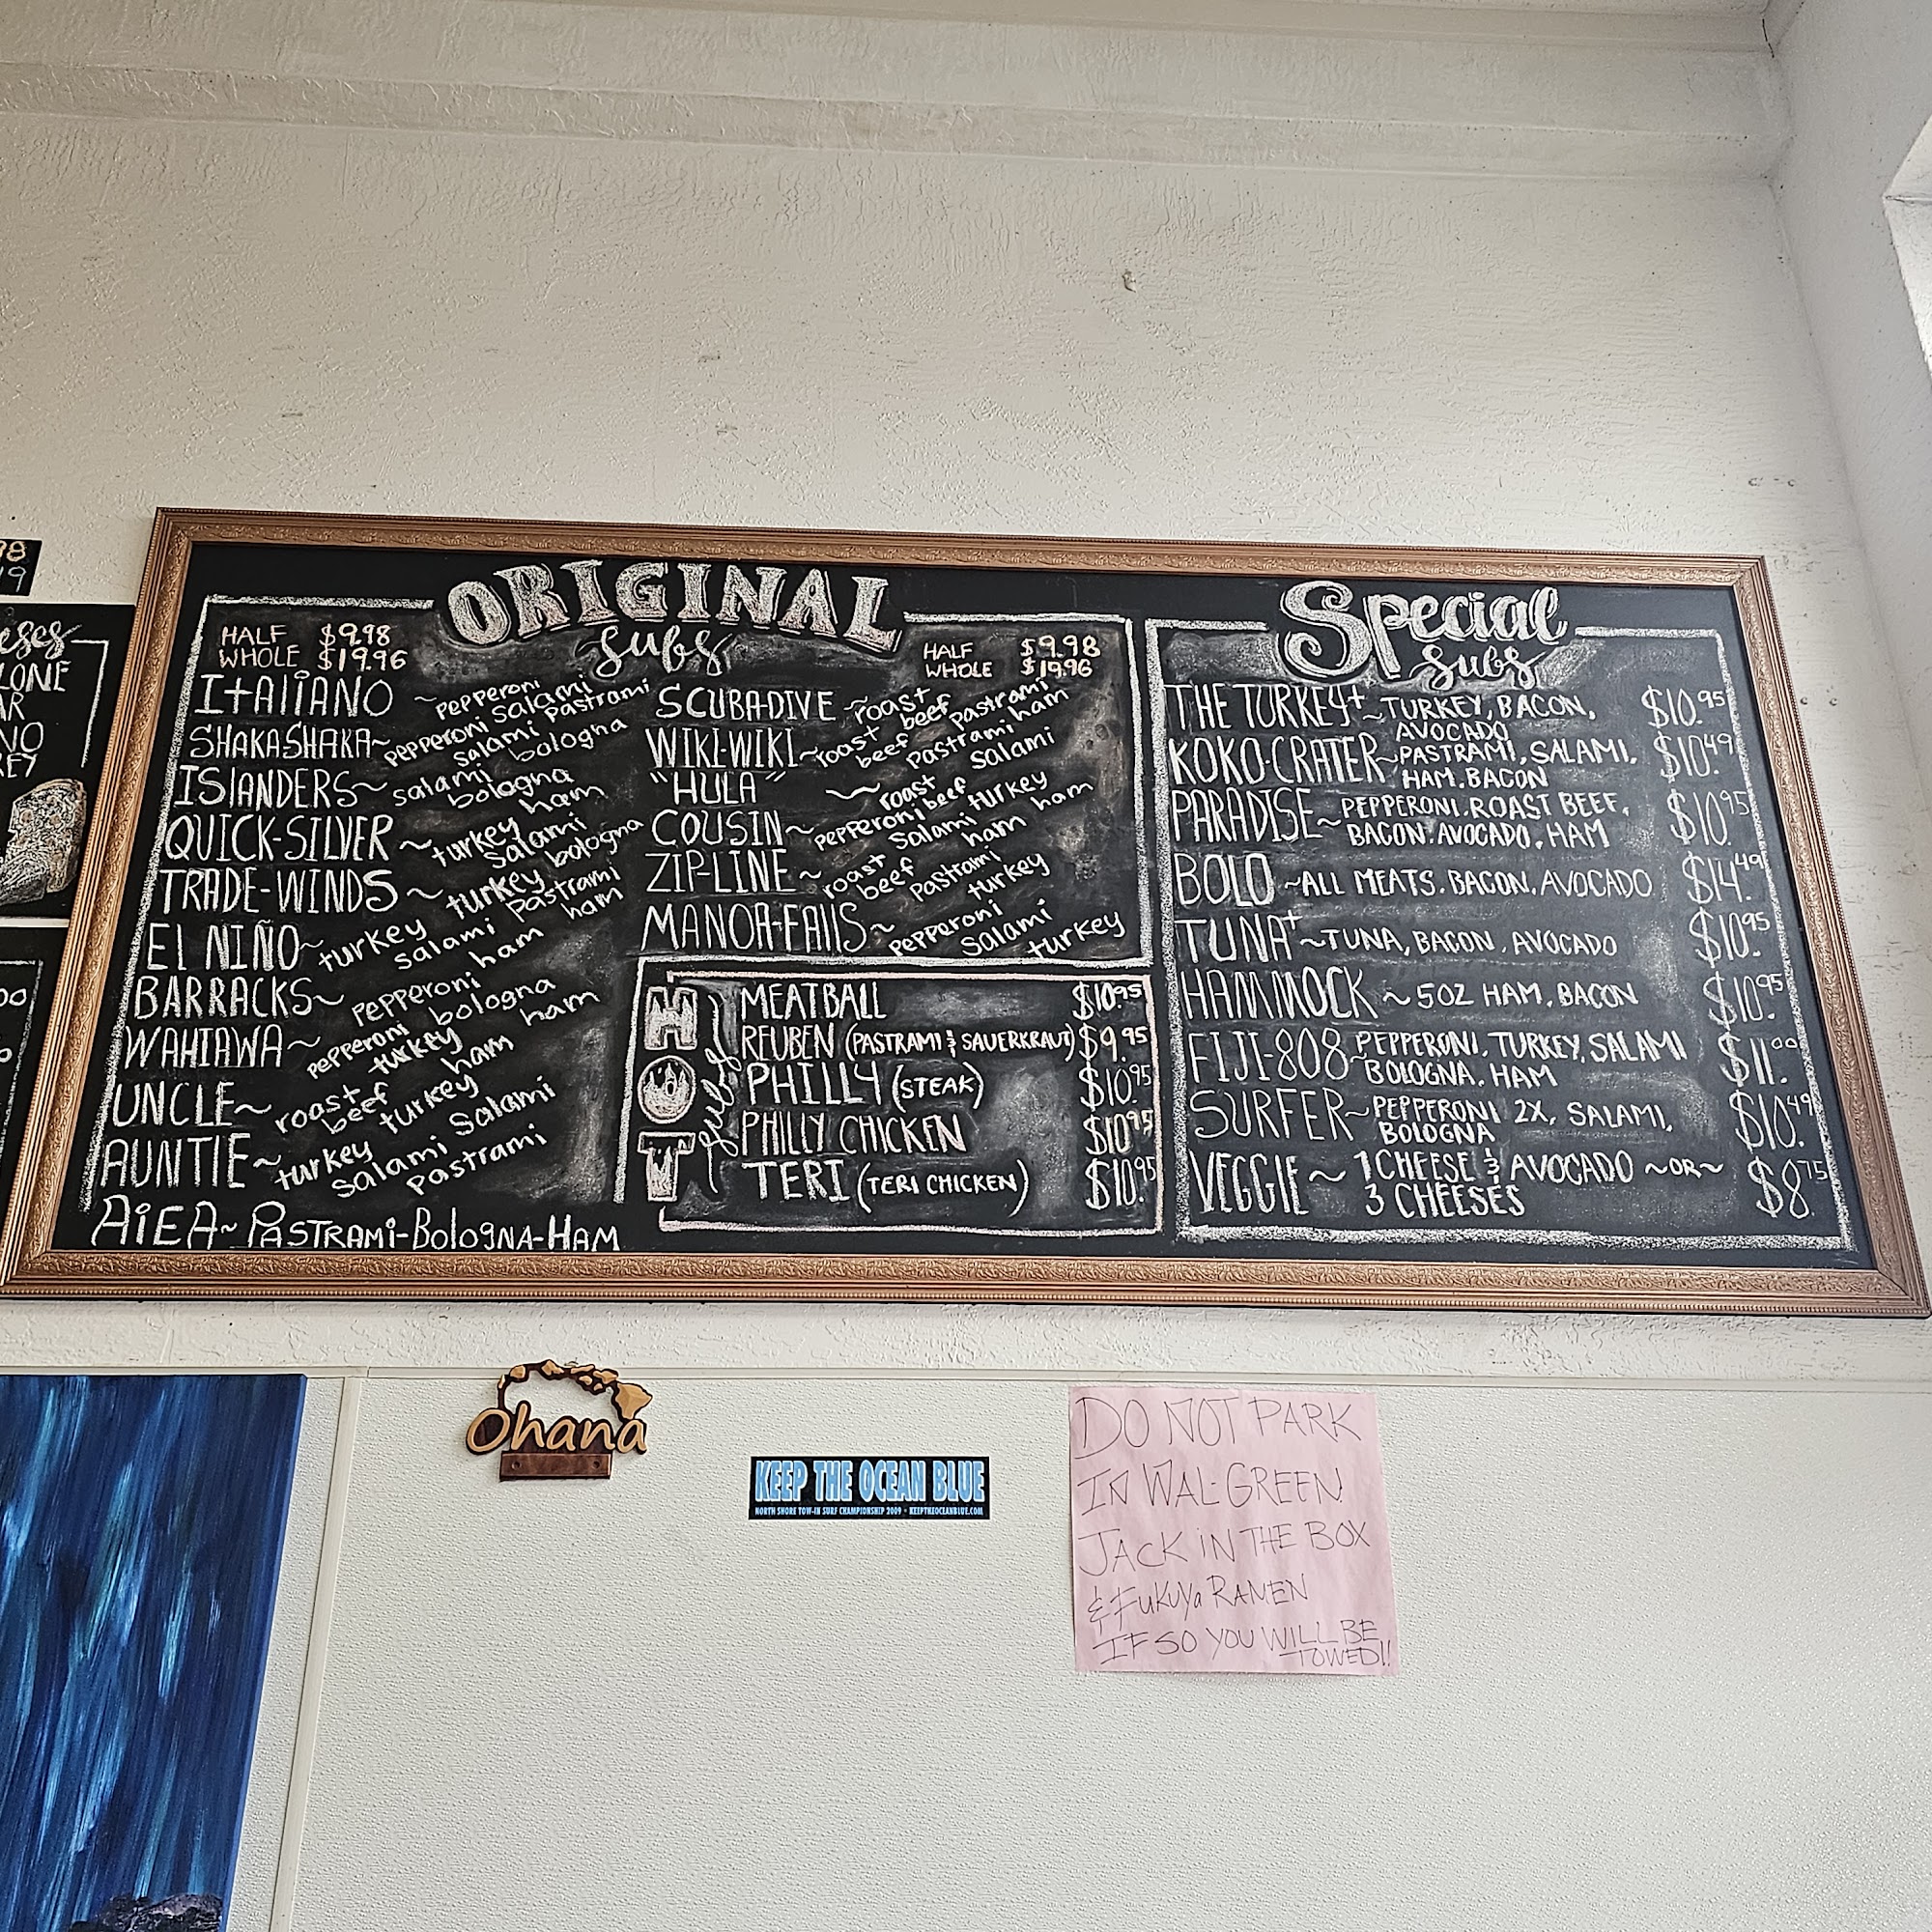 98
19
eses
LONE
AR
NO
KEY
00
ORIGINAL
subs
HALF $9.98
WHOLE $19.96
HALF $9.98
WHOLE $19.96
ITALIANO ~ pepperoni
SHAKA-SHAKA~ pepperoni salami
ISLANDERS~ salami salami pastrami
bologna bologna
QUICK-SILVER ~ turkey ham
TRADE-WINDS ~ turkey salami bologna
EL NIÑO~ turkey salami pastrami
BARRACKS~ pepperoni ham ham
WAHIAWA~ pepperoni turkey bologna
UNCLE~ roast beef ham ham
AUNTIE~ turkey salami turkey
pastrami salami
AIEA~ PASTRAMI-BOLOGNA-HAM
SCUBA-DIVE ~ roast beef pastrami
WIKI-WIKI~ roast beef pastrami ham
"HULA" ~ roast beef salami
COUSIN~ pepperoni salami turkey
ZIP-LINE~ roast beef ham ham
MANOA-FALLS~ pepperoni salami turkey
pastrami turkey
HOT
subs
MEATBALL $10.95
REUBEN (PASTRAMI & SAUERKRAUT) $9.95
PHILLY (STEAK) $10.95
PHILLY CHICKEN $10.95
TERI (TERI CHICKEN) $10.95
Special
subs
THE TURKEY+ ~TURKEY, BACON, $10.95
AVOCADO
KOKO-CRATER~PASTRAMI, SALAMI, $10.49
HAM, BACON
PARADISE~PEPPERONI, ROAST BEEF, $10.95
BACON, AVOCADO, HAM
BOLO ~ALL MEATS, BACON, AVOCADO $14.49
TUNA+ ~TUNA, BACON, AVOCADO $10.95
HAMMOCK ~ 5OZ HAM, BACON $10.95
FIJI-808~PEPPERONI, TURKEY, SALAMI $11.00
BOLOGNA, HAM
SURFER~PEPPERONI 2X, SALAMI, $10.49
BOLOGNA
VEGGIE ~ 1 CHEESE & AVOCADO ~OR~ $8.75
3 CHEESES
Ohana
KEEP THE OCEAN BLUE
NORTH SHORE TOW-IN SURF CHAMPIONSHIP 2009 · KEEPTHEOCEANBLUE.COM
DO NOT PARK
IN WAL-GREEN
JACK IN THE BOX
& FUKUYA RAMEN
IF SO YOU WILL BE
TOWED!!